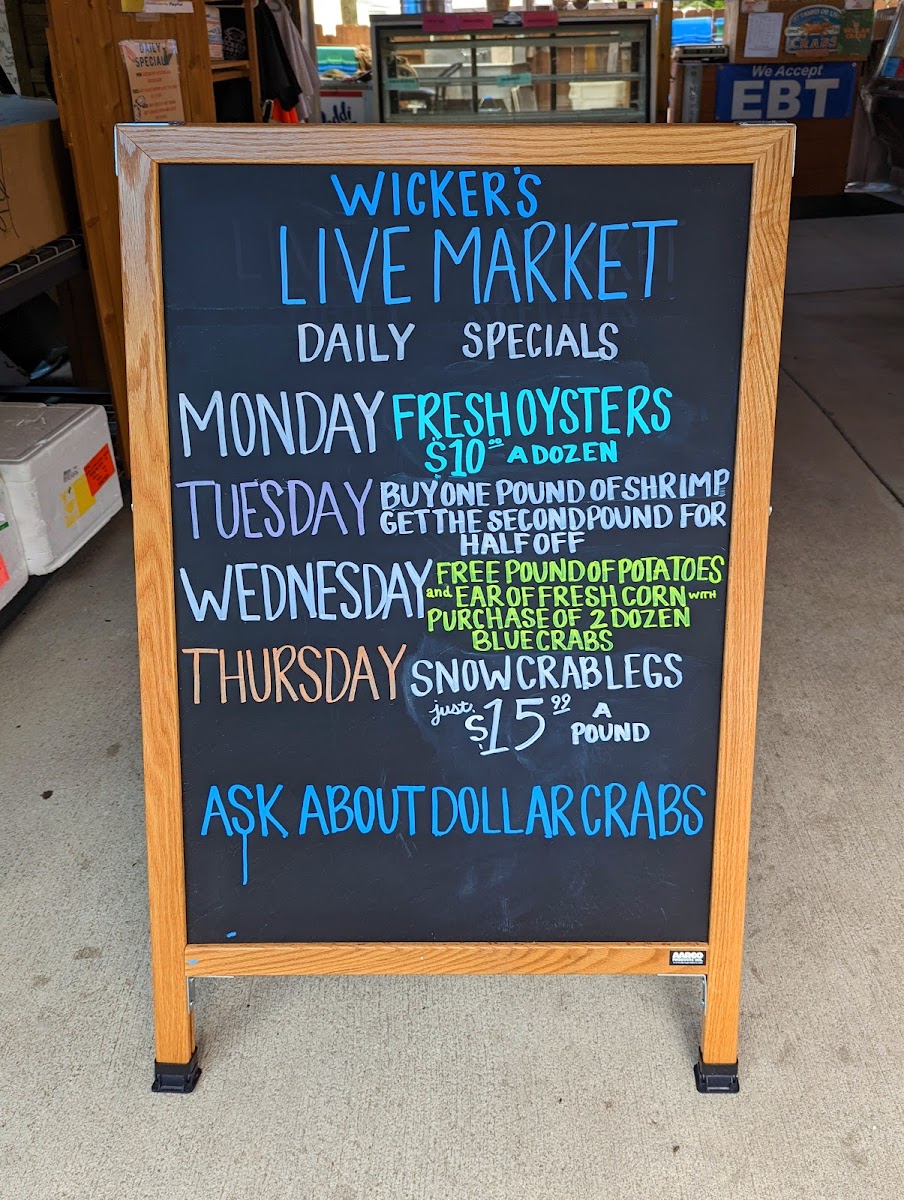 DAILY
SPECIAL
We Accept
EBT
CRABS
WICKER'S
LIVE MARKET
DAILY SPECIALS
MONDAY FRESH OYSTERS
$10.00 A DOZEN
TUESDAY BUY ONE POUND OF SHRIMP
GET THE SECOND POUND FOR
HALF OFF
WEDNESDAY FREE POUND OF POTATOES
and EAR OF FRESH CORN WITH
PURCHASE OF 2 DOZEN
BLUE CRABS
THURSDAY SNOW CRAB LEGS
just $15.99 A
POUND
ASK ABOUT DOLLAR CRABS
AARCO